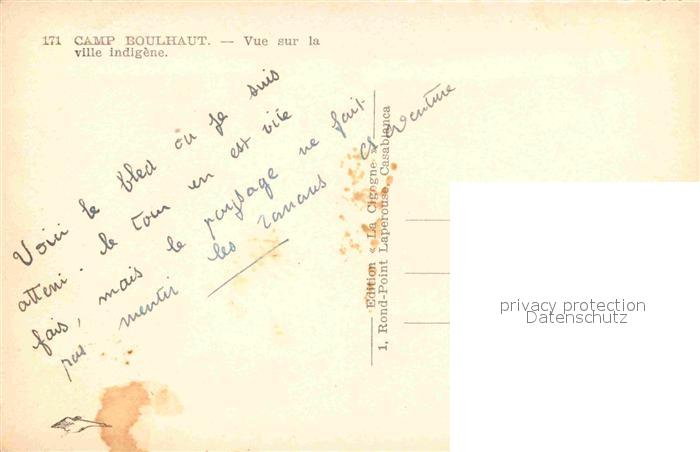 171 CAMP BOULHAUT. — Vue sur la
ville indigène.
Voici le bled ou je suis
atteri. le tour en est vite
fais, mais le paysage ne fait
pas mentir les romans d'aventure
Edition « La Cigogne »
1, Rond-Point Laperouse, Casablanca
privacy protection
Datenschutz